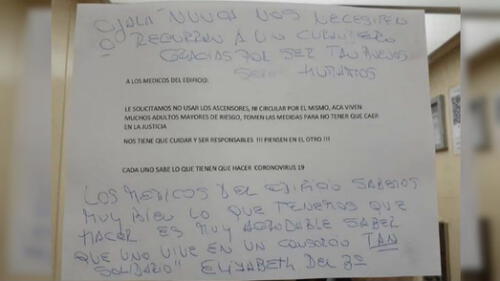 OJALÁ NUNCA NOS NECESITEN
O RECURRAN A UN CURANDERO
GRACIAS POR SER TAN BUENOS
SERES HUMANOS
A LOS MEDICOS DEL EDIFICIO:
LE SOLICITAMOS NO USAR LOS ASCENSORES, NI CIRCULAR POR EL MISMO, ACA VIVEN
MUCHOS ADULTOS MAYORES DE RIESGO, TOMEN LAS MEDIDAS PARA NO TENER QUE CAER
EN LA JUSTICIA
NOS TIENE QUE CUIDAR Y SER RESPONSABLES !!! PIENSEN EN EL OTRO !!!
CADA UNO SABE LO QUE TIENEN QUE HACER CORONOVIRUS 19
LOS MEDICOS DEL EDIFICIO SABEMOS
MUY BIEN LO QUE TENEMOS QUE
HACER ES MUY AGRADABLE SABER
QUE UNO VIVE EN UN CONSORCIO TAN
SOLIDARIO" ELIZABETH DEL 3º